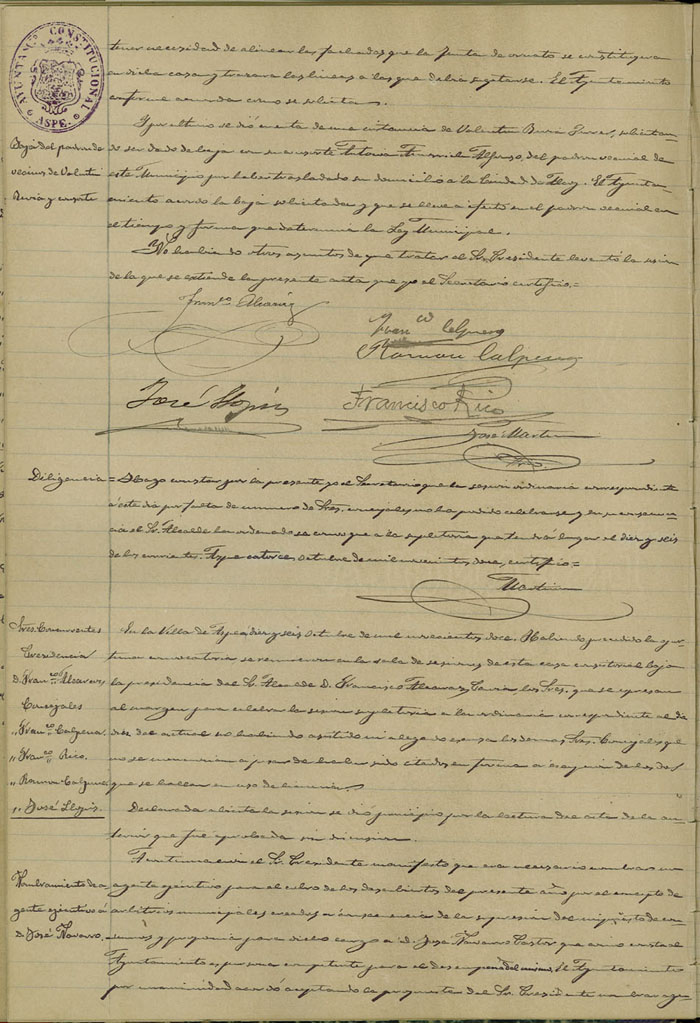 AYUNTAM. CONSTITUCIONAL
ASPE.
tener necesidad de alinear las fachadas que la Junta de ornato se constituyera
en dicha casa y trazara las lineas a las que debia sujetarse. El Ayuntamiento
acuerda como se solicita.
Y por ultimo se dió cuenta de una instancia de Valentin solicitan-
do ser dado de baja con su Antonia Alfonso, del padron vecinal de
este Municipio por haber trasladado su domicilio a la Ciudad de Alcoy. El Ayunta-
miento acordó la baja solicitada y que se lleve a efecto en el padron vecinal en
el tiempo y forma que determina la Ley Municipal.
Baja del padron de
vecinos de Valentin
y consorte
No habiendo otros asuntos de que tratar el Sr. Presidente levantó la sesion
de la que se extiende la presente acta que yo el Secretario certifico.=
Franco Alcaraz
Franco Calpena
Ramon Calpena
José Llopis
Francisco Rico
José Martin
Diligencia = Hago constar por la presente yo el Secretario que la sesion ordinaria correspondiente
á este dia por falta de numero de Sres. concejales no ha podido celebrarse y en su consecuen-
cia el Sr. Alcalde ha ordenado se convoque a la supletoria que tendrá lugar el diez y seis
de los corrientes. Aspe catorce Octubre de mil novecientos doce, certifico=
Martin
Sres. Concurrentes
Presidencia
D. Franco Alcaraz
Concejales
" Franco Calpena
" Franco Rico.
" Ramon Calpena
" José Llopis
En la Villa de Aspe á diez y seis Octubre de mil novecientos doce. Habiendo precedido la opor-
tuna convocatoria se reunieron en la sala de sesiones de esta casa consistorial bajo
la presidencia del Sr. Alcalde D. Francisco Alcaraz los Sres. que se expresan
al margen para celebrar la sesion supletoria a la ordinaria correspondiente al dia
del actual no habiendo asistido ni alegado excusa los demas Sres. Concejales que
no se enumeran a pesar de haber sido citados en forma a excepcion de los dos
que se hallan en uso de licencia.
Declarada abierta la sesion se dió principio por la lectura del acta de la an-
terior que fue aprobada sin discusion.
Acto continuo el Sr. Presidente manifestó que era necesario nombrar un
agente ejecutivo para el cobro de los descubiertos del presente año por el concepto de
arbitrios municipales creados á consecuencia de la supresion del impuesto de con-
sumos y proponia para dicho cargo a D. José Navarro Pastor que como consta al
Ayuntamiento es persona competente para el desempeño del mismo. El Ayuntamiento
por unanimidad acordó aceptando la propuesta del Sr. Presidente nombrar agen-
Nombramiento de a-
gente ejecutivo á
D. José Navarro.